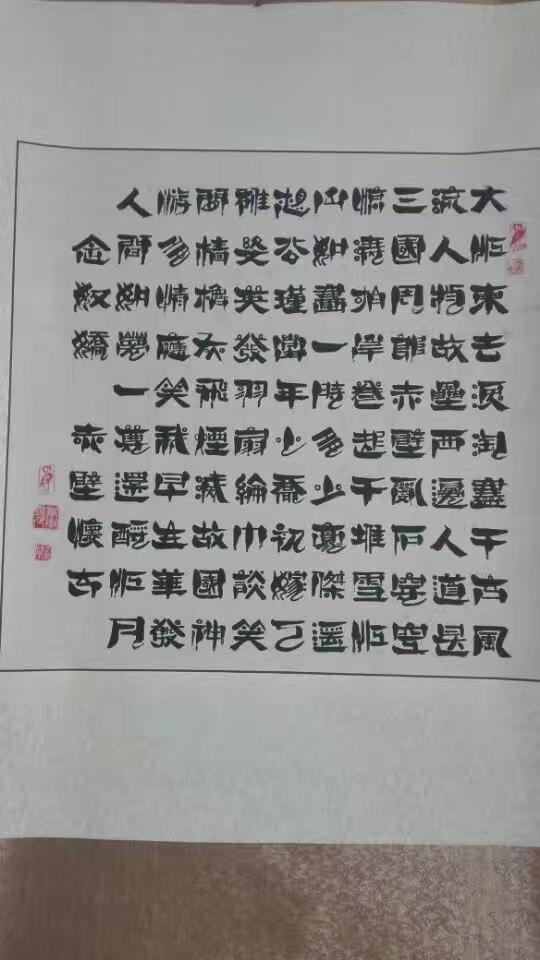 大江東去浪淘盡千古風
流人物故壘西邊人道是
三國周郎赤壁亂石穿空
驚濤拍岸卷起千堆雪江
山如畫一時多少豪傑遥
想公瑾當年小喬初嫁了
雄姿英發羽扇綸巾談笑
間檣櫓灰飛煙滅故國神
游多情應笑我早生華發
人間如夢一尊還酹江月
念奴嬌 赤壁懷古